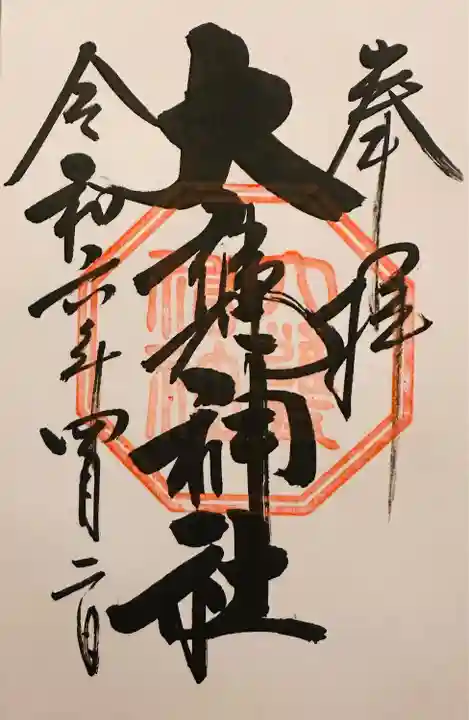 奉拝
大甕神社
令和六年四月二日